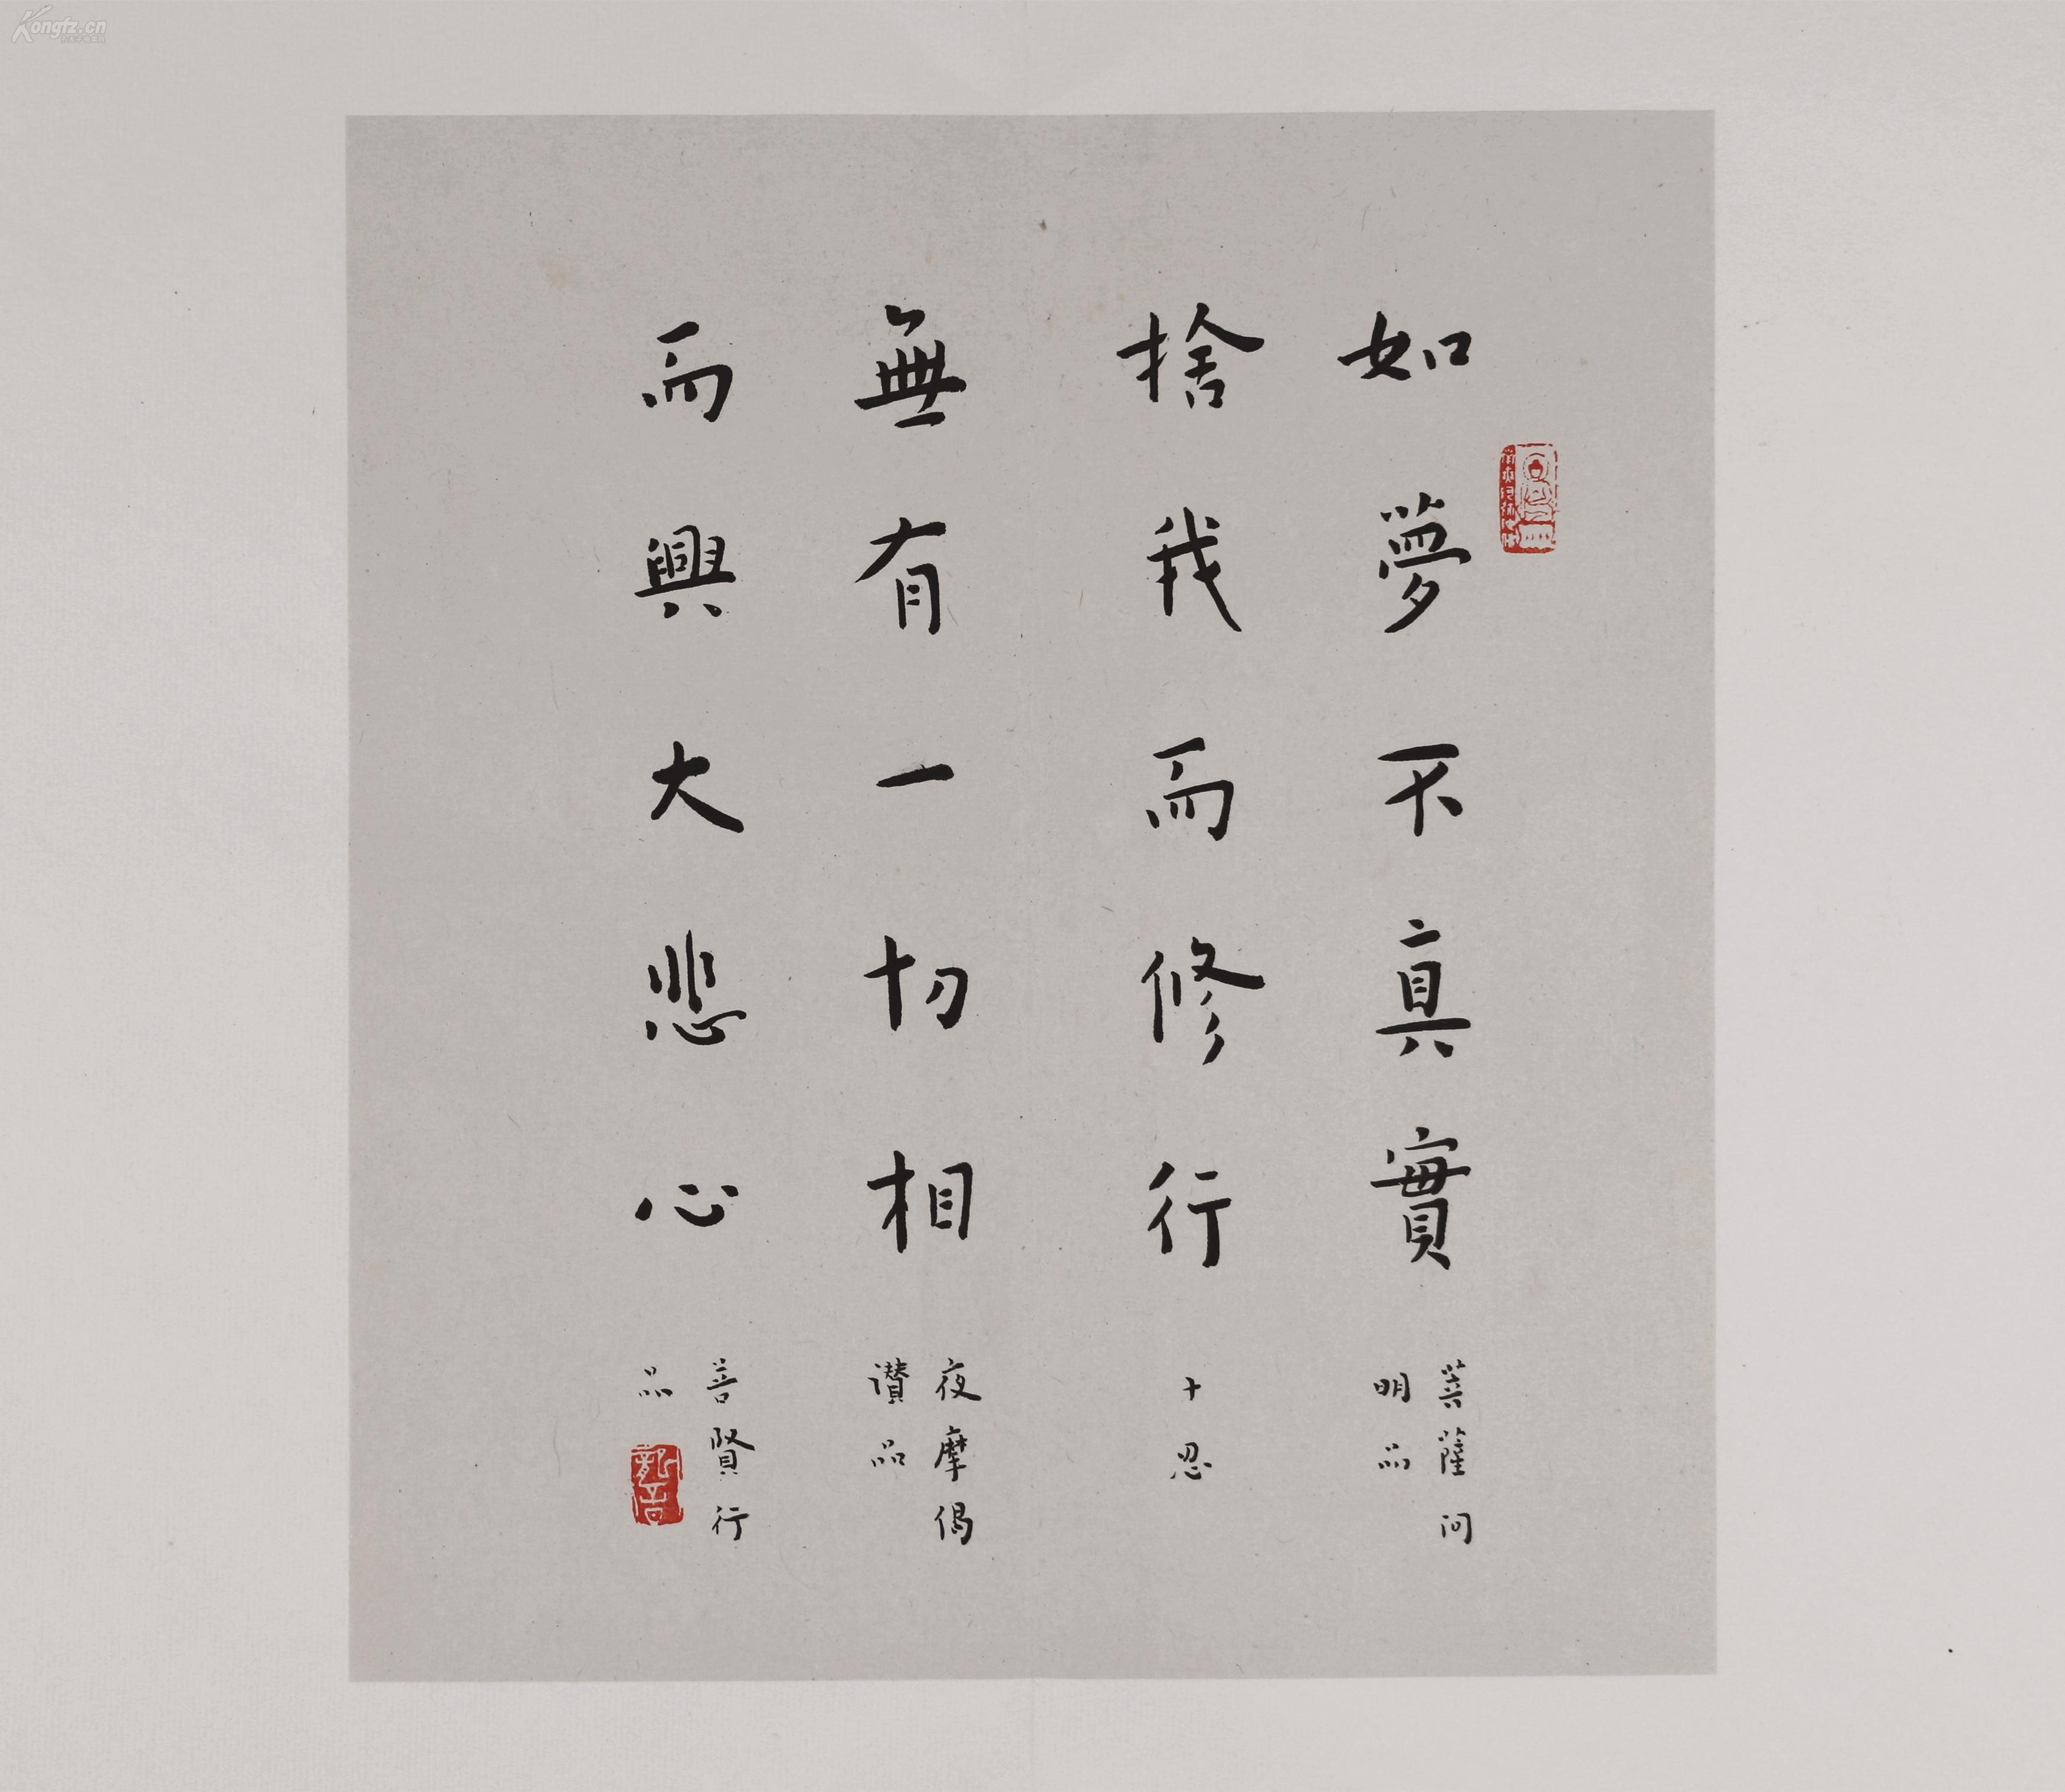 如夢不真實
菩薩問
明品
捨我而修行
十忍
無有一切相
夜摩偈
讃品
而興大悲心
普賢行
品
Kongfz.cn